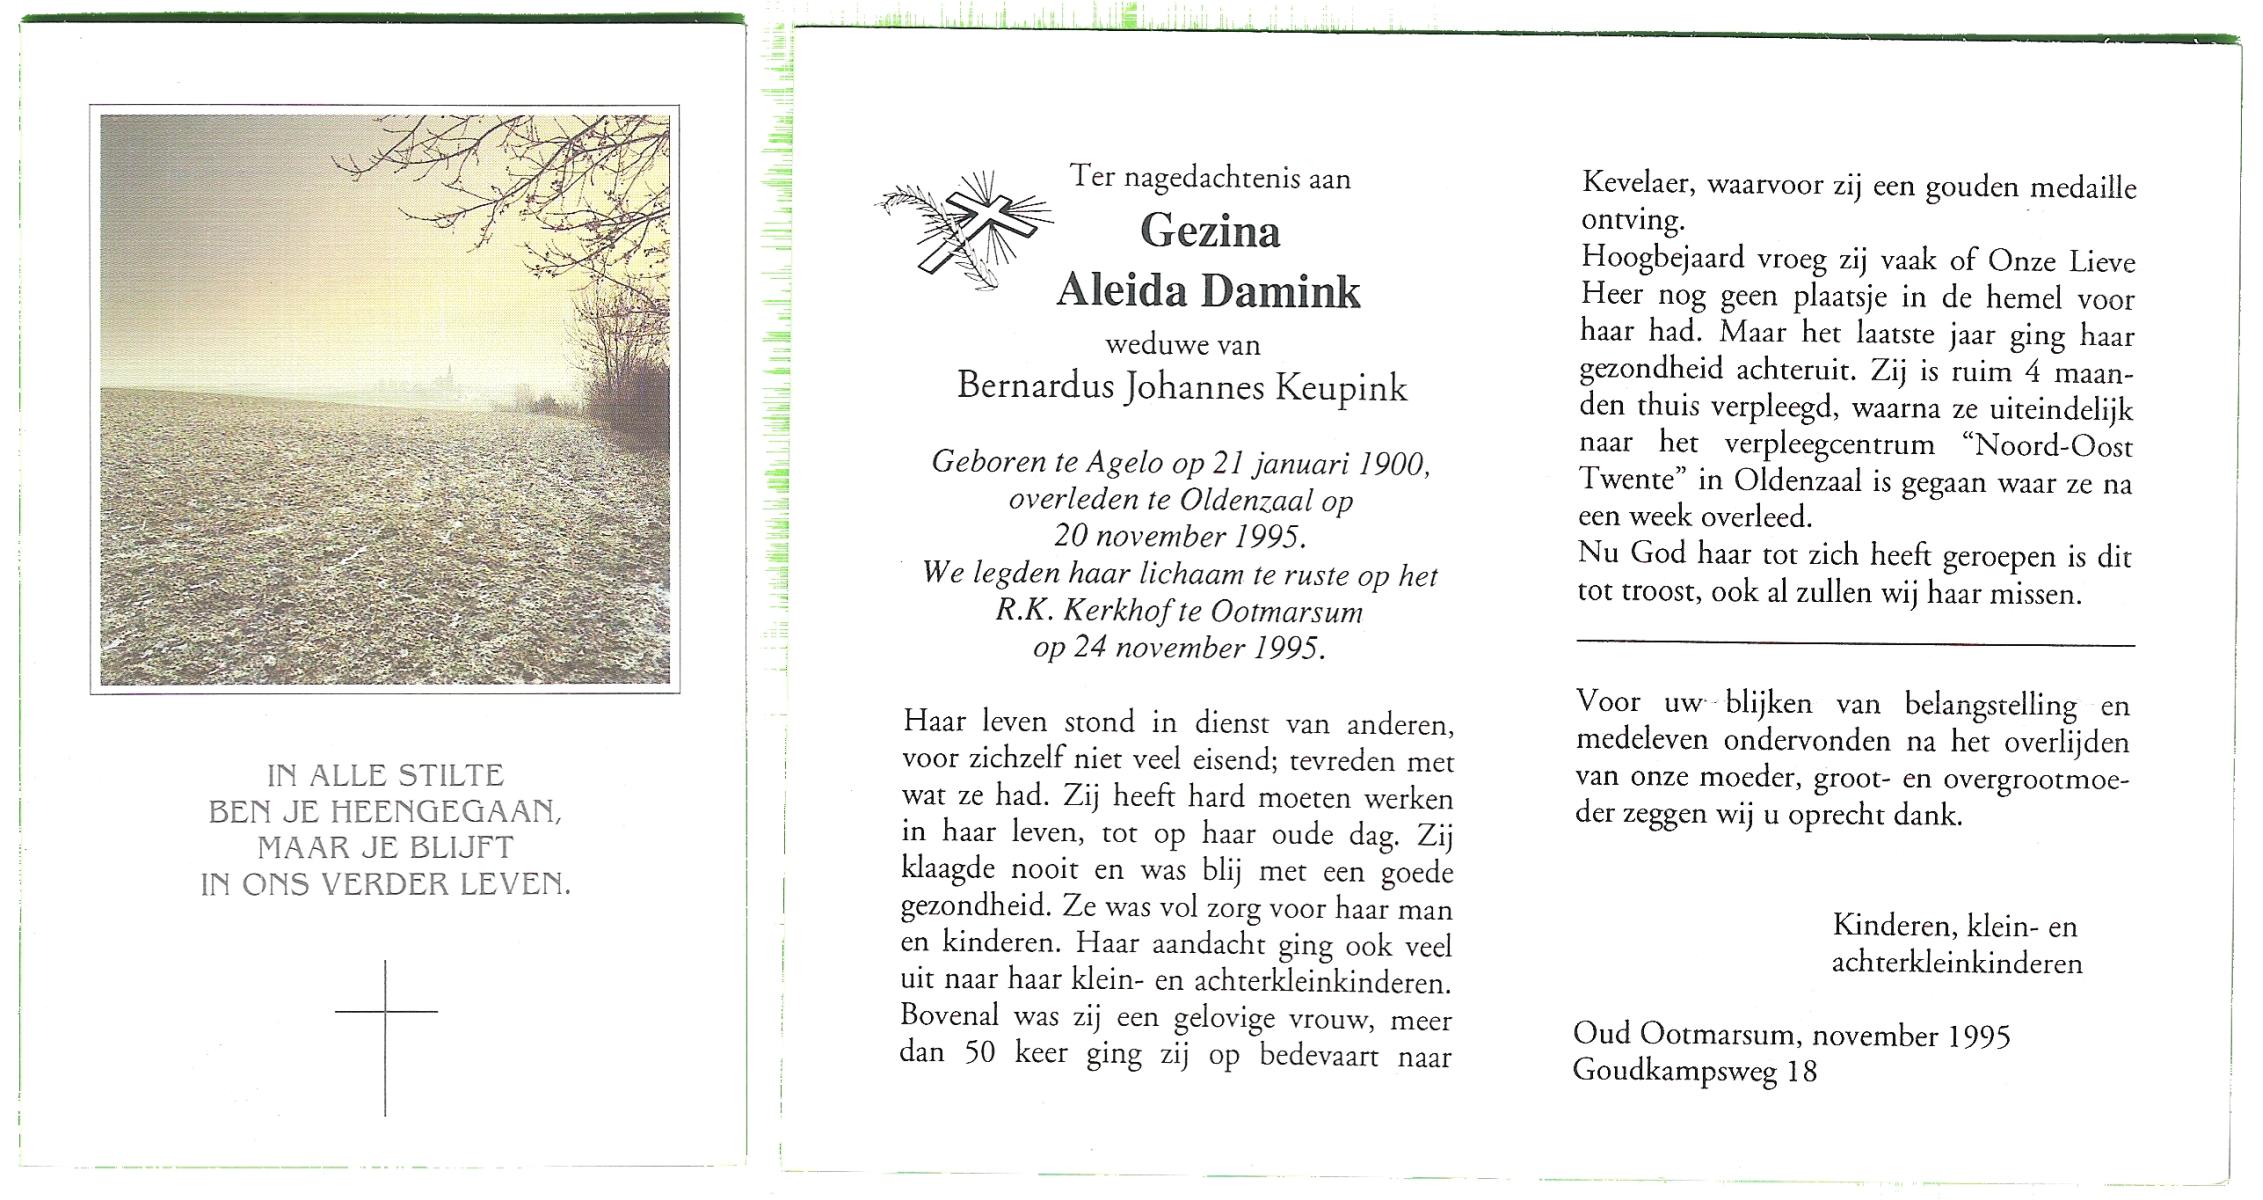 IN ALLE STILTE
BEN JE HEENGEGAAN,
MAAR JE BLIJFT
IN ONS VERDER LEVEN.
Ter nagedachtenis aan
Gezina
Aleida Damink
weduwe van
Bernardus Johannes Keupink
Geboren te Agelo op 21 januari 1900,
overleden te Oldenzaal op
20 november 1995.
We legden haar lichaam te ruste op het
R.K. Kerkhof te Ootmarsum
op 24 november 1995.
Haar leven stond in dienst van anderen,
voor zichzelf niet veel eisend; tevreden met
wat ze had. Zij heeft hard moeten werken
in haar leven, tot op haar oude dag. Zij
klaagde nooit en was blij met een goede
gezondheid. Ze was vol zorg voor haar man
en kinderen. Haar aandacht ging ook veel
uit naar haar klein- en achterkleinkinderen.
Bovenal was zij een gelovige vrouw, meer
dan 50 keer ging zij op bedevaart naar
Kevelaer, waarvoor zij een gouden medaille
ontving.
Hoogbejaard vroeg zij vaak of Onze Lieve
Heer nog geen plaatsje in de hemel voor
haar had. Maar het laatste jaar ging haar
gezondheid achteruit. Zij is ruim 4 maan-
den thuis verpleegd, waarna ze uiteindelijk
naar het verpleegcentrum “Noord-Oost
Twente” in Oldenzaal is gegaan waar ze na
een week overleed.
Nu God haar tot zich heeft geroepen is dit
tot troost, ook al zullen wij haar missen.
Voor uw blijken van belangstelling en
medeleven ondervonden na het overlijden
van onze moeder, groot- en overgrootmoe-
der zeggen wij u oprecht dank.
Kinderen, klein- en
achterkleinkinderen
Oud Ootmarsum, november 1995
Goudkampsweg 18